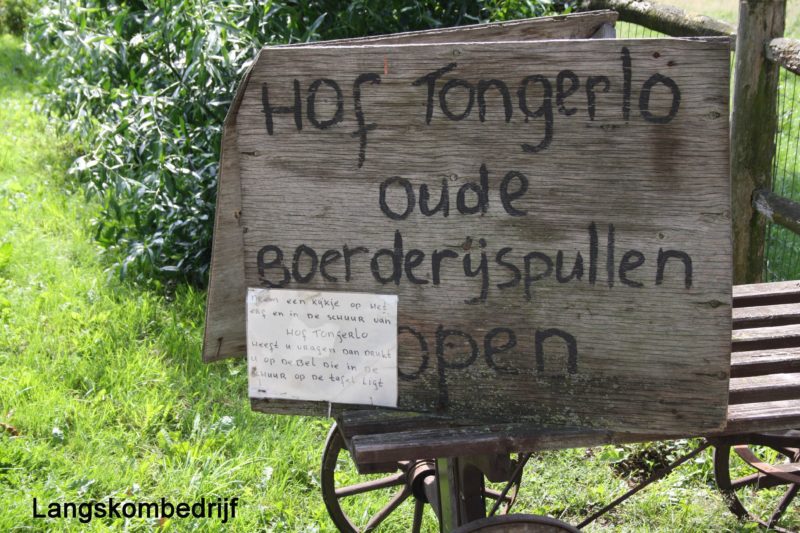 Hof Tongerlo
oude
Boerderijspullen
open
Neem een kijkje op het
erf en in de schuur van
Hof Tongerlo
Heeft u vragen dan drukt
u op de bel die in de
schuur op de tafel ligt
Langskombedrijf